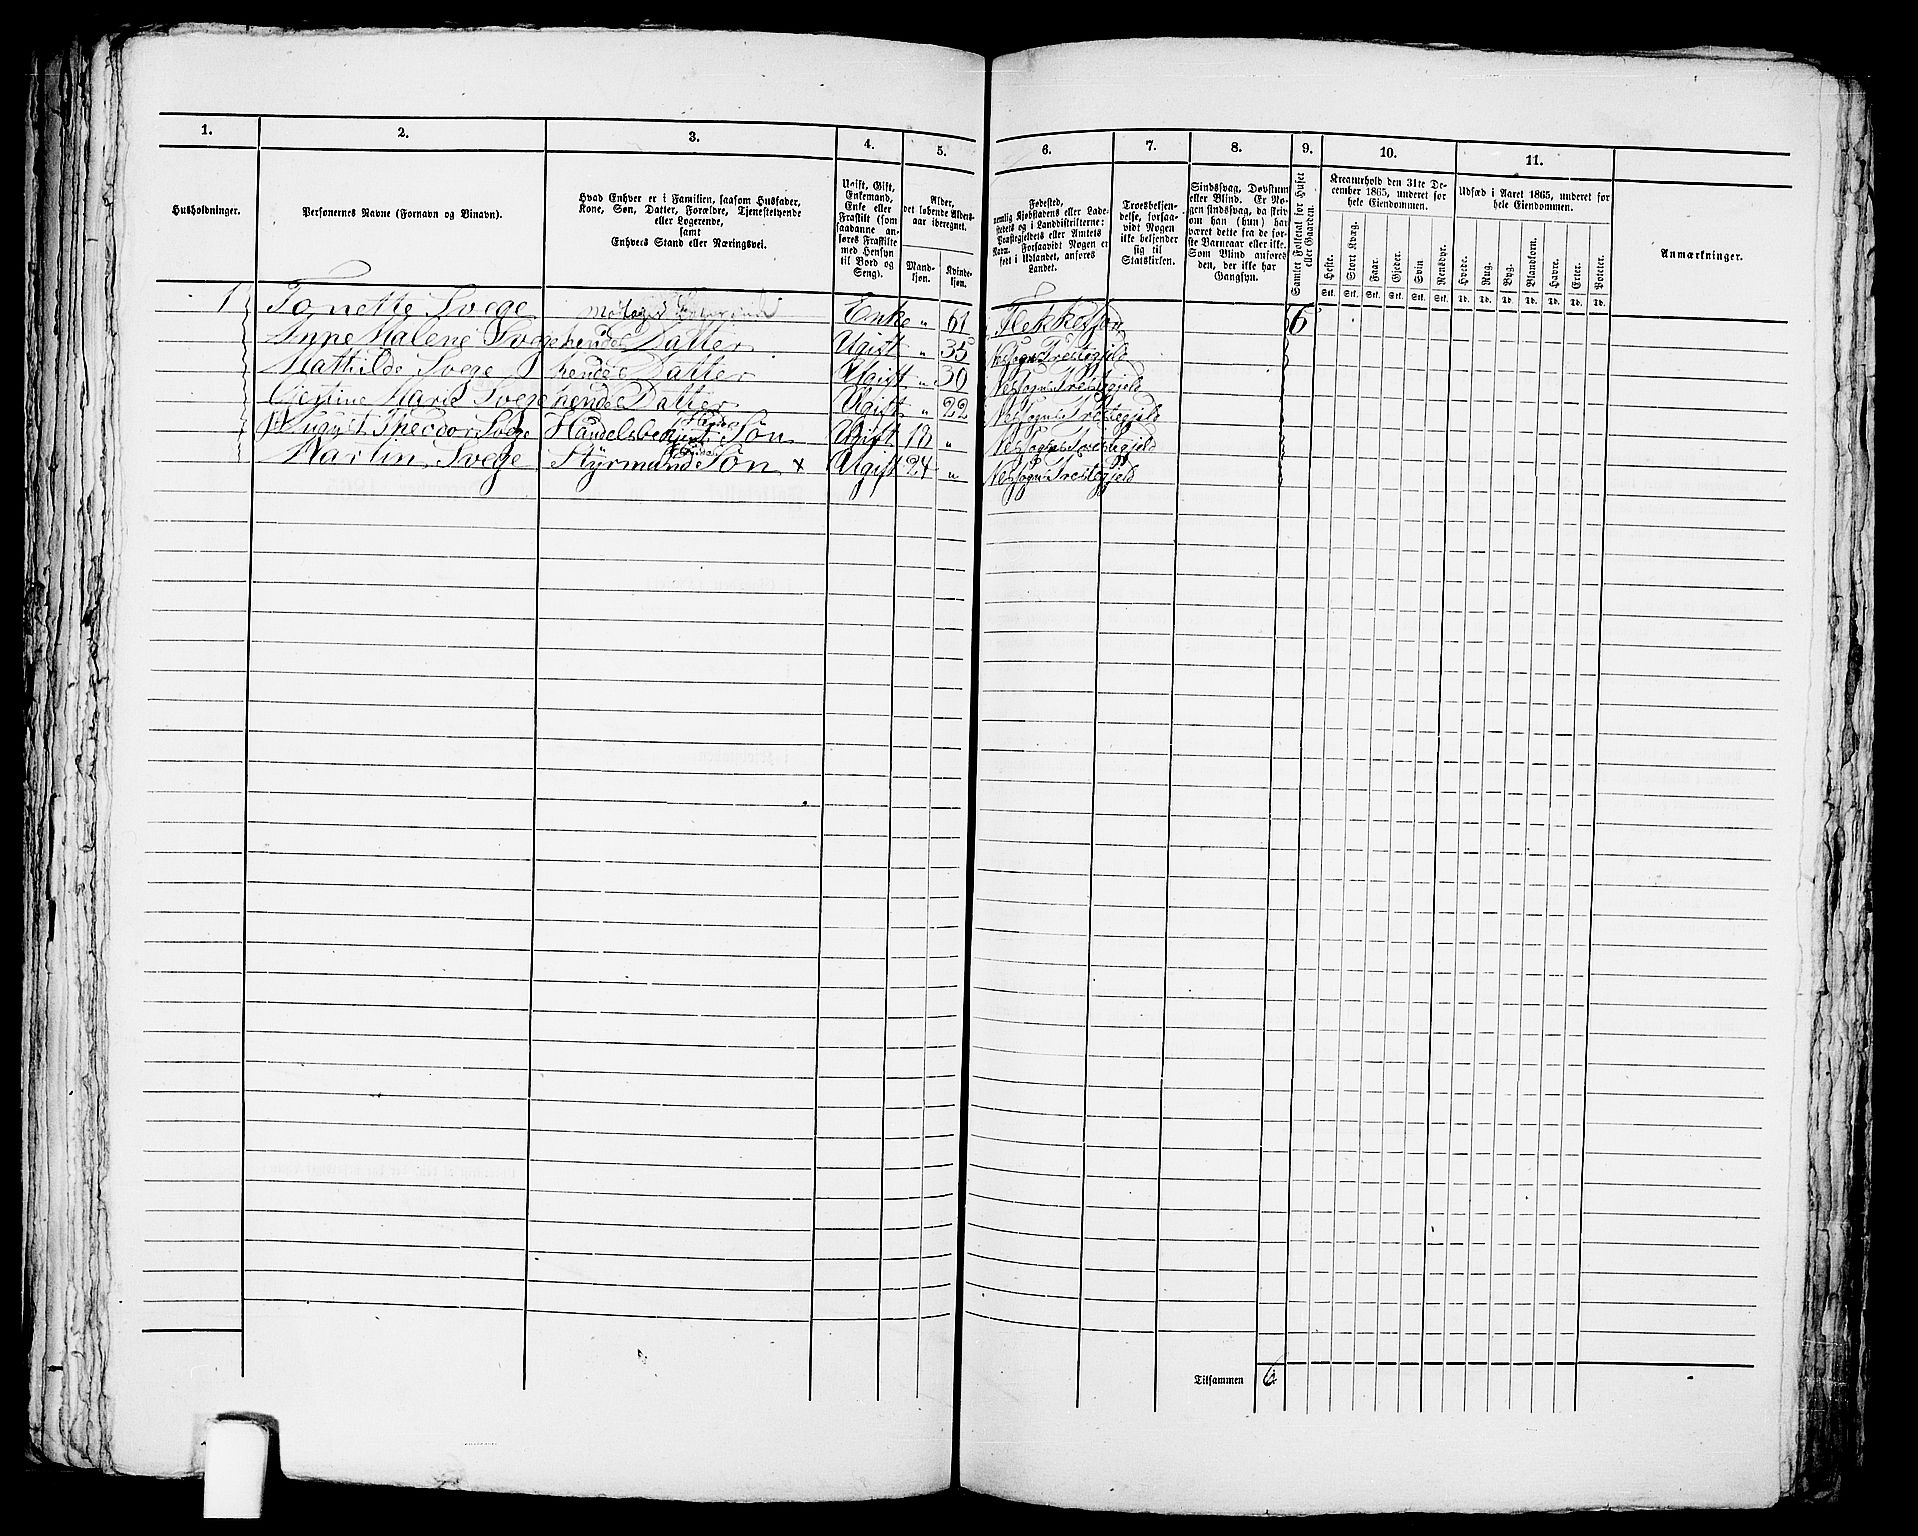 1. 2. 3. 4. 5. 6. 7. 8. 9. 10. 11.
Husholdninger.
Personernes Navne (Fornavn og Binavn).
Hvad Enhver er i Familien, saasom Husfader,
Kone, Søn, Datter, Forældre, Tjenestetyende
eller Logerende,
samt
Enhvers Stand eller Næringsvei.
Ugift, Gift,
Enkemand,
Enke eller
Fraskilt (som
saadanne an-
føres Fraskilte
med Hensyn
til Bord og
Seng).
Alder,
det løbende Alders-
aar iberegnet.
Mand-
kjøn.
Kvinde-
kjøn.
Fødested,
nemlig Kjøbstadens eller Lade-
stedets og i Landdistrikterne:
Præstegjeldets eller Amtets
Navn. Forsaavidt Nogen er
født i Udlandet, anføres
Landet.
Troesbekjen-
delse, forsaa-
vidt Nogen
ikke bekjender
sig til
Statskirken.
Sindssvag, Døvstum
eller Blind. Er No-
gen sindssvag, da skriv
om han (hun) har
været dette fra de før-
ste Barneaar eller ikke.
Som Blind anføres
den, der ikke har
Gangsyn.
Samlet Folketal for Huset
eller Gaarden.
Kreaturhold den 31te De-
cember 1865, underet for
hele Eiendommen.
Heste. Stort Kvæg. Faar. Gjeder. Svin. Rensdyr.
Stk. Stk. Stk. Stk. Stk. Stk.
Udsæd i Aaret 1865, underet for
hele Eiendommen.
Hvede. Rug. Byg. Blandkorn. Havre. Erter. Poteter.
Td. Td. Td. Td. Td. Td. Td.
Anmærkninger.
1 Tonette Svege Enke " 61 Flekkefjord 6
Anne Malene Svege hendes Datter Ugift " 35 Nessogns Prestegjeld
Mathilde Svege hendes Datter Ugift " 30 Nessogns Prestegjeld
Gjertine Marie Svege hendes Datter Ugift " 22 Nessogns Prestegjeld
August Theodor Svege Handelsbetjent hendes Søn Ugift 18 " Nessogns Prestegjeld
Martin Svege Styrmand hendes Søn x Ugift 24 " Nessogns Prestegjeld
Tilsammen 6